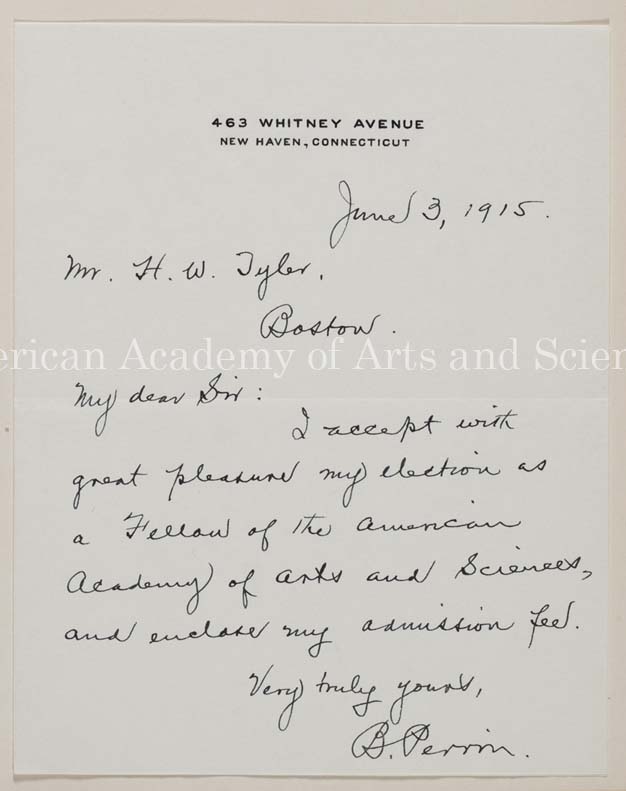 463 WHITNEY AVENUE
NEW HAVEN, CONNECTICUT
June 3, 1915.
Mr. H. W. Tyler,
Boston.
erican Academy of Arts and Scien
My dear Sir:
I accept with
great pleasure my election as
a Fellow of the American
Academy of Arts and Sciences,
and enclose my admission fee.
Very truly yours,
B. Perrin.